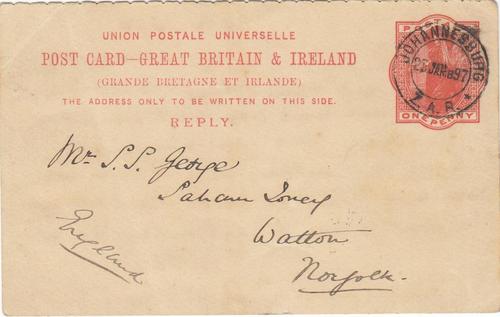 UNION POSTALE UNIVERSELLE
POST CARD—GREAT BRITAIN & IRELAND
(GRANDE BRETAGNE ET IRLANDE)
THE ADDRESS ONLY TO BE WRITTEN ON THIS SIDE.
REPLY.
POSTAGE
ONE PENNY
JOHANNESBURG
JAN 97
Z.A.R.
Mr S.S. George
Saham Toney
Watton
Norfolk.
England